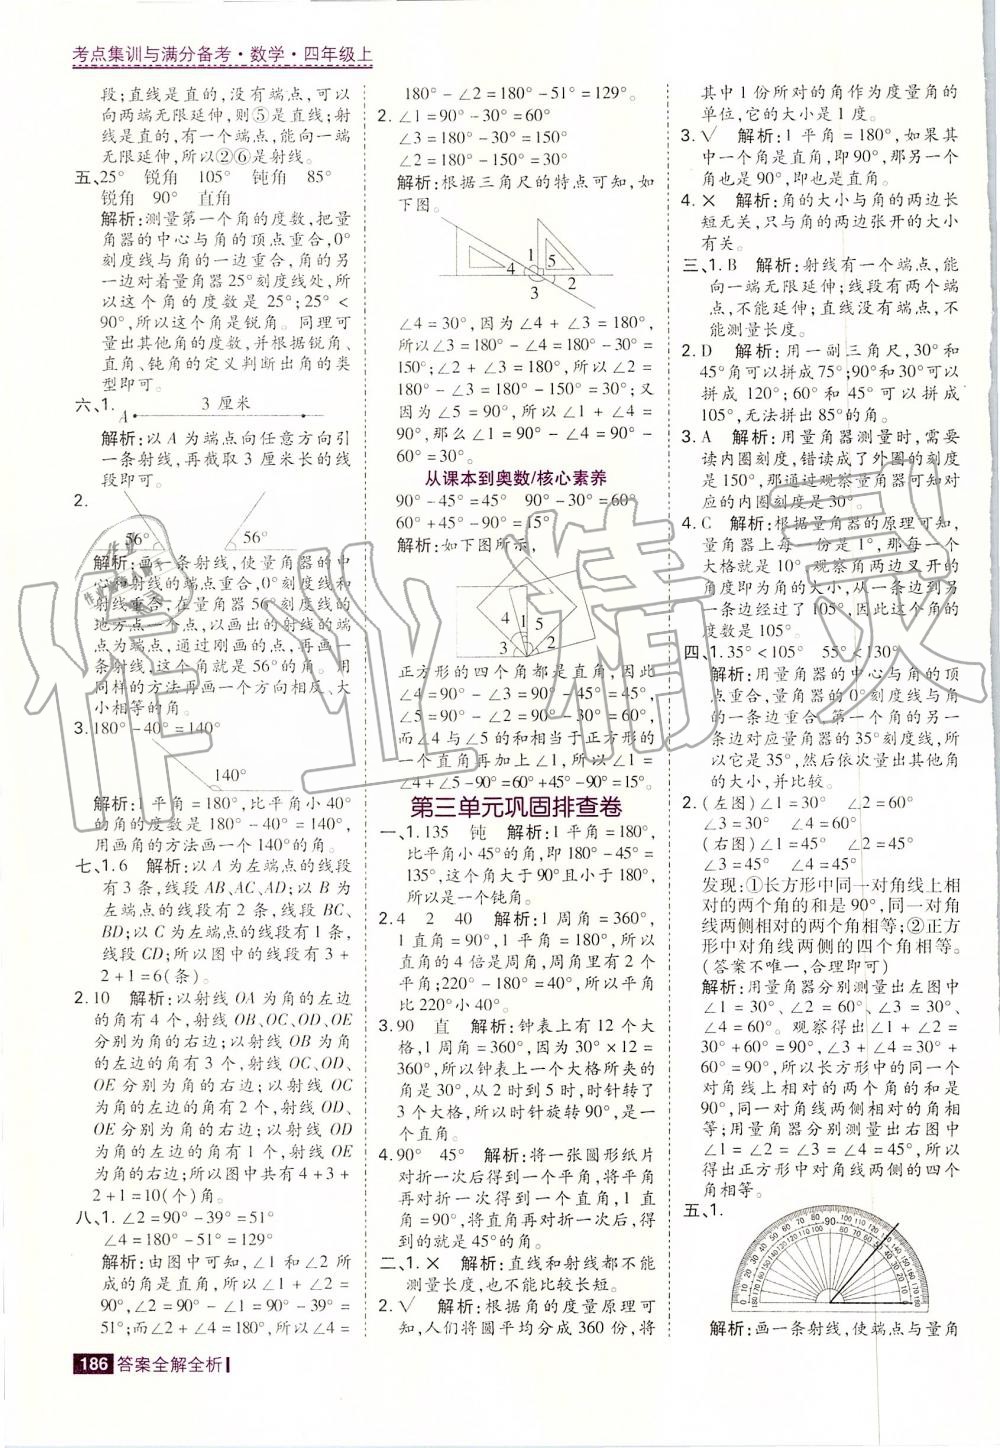 考点集训与满分备考·数学·四年级上
段;直线是直的,没有端点,可以
向两端无限延伸,则⑤是直线;射
线是直的,有一个端点,能向一端
无限延伸,所以②⑥是射线。
五、25° 锐角 105° 钝角 85°
锐角 90° 直角
解析:测量第一个角的度数,把量
角器的中心与角的顶点重合,0°
刻度线与角的一边重合,角的另
一边对着量角器25°刻度线处,所
以这个角的度数是25°;25°<
90°,所以这个角是锐角。同理可
量出其他角的度数,并根据锐角、
直角、钝角的定义判断出角的类
型即可。
六、1. 3厘米
A
解析:以A为端点向任意方向引
一条射线,再截取3厘米长的线
段即可。
2.
56° 56°
解析:画一条射线,使量角器的中
心和射线的端点重合,0°刻度线和
射线重合;在量角器56°刻度线的
地方点一个点,以画出的射线的端
点为端点,通过刚画的点,再画一
条射线,这个角就是56°的角。用
同样的方法再画一个方向相反、大
小相等的角。
3. 180°-40°=140°
140°
解析:1平角=180°,比平角小40°
的角的度数是180°-40°=140°,
用画角的方法画一个140°的角。
七、1. 6 解析:以A为左端点的线段
有3条,线段AB、AC、AD;以B为
左端点的线段有2条,线段BC、
BD;以C为左端点的线段有1条,
线段CD;所以图中的线段有3+
2+1=6(条)。
2. 10 解析:以射线OA为角的左边
的角有4个,射线OB、OC、OD、OE
分别为角的右边;以射线OB为角
的左边的角有3个,射线OC、OD、
OE分别为角的右边;以射线OC
为角的左边的角有2个,射线OD、
OE分别为角的右边;以射线OD
为角的左边的角有1个,射线OE
为角的右边;所以图中共有4+3+
2+1=10(个)角。
八、1. ∠2=90°-39°=51°
∠4=180°-51°=129°
解析:由图中可知,∠1和∠2所
成的角是直角,所以∠1+∠2=
90°,∠2=90°-∠1=90°-39°=
51°;而∠2+∠4=180°,所以∠4=
180°-∠2=180°-51°=129°。
2. ∠1=90°-30°=60°
∠3=180°-30°=150°
∠2=180°-150°=30°
解析:根据三角尺的特点可知,如
下图。
1 5 4 2 3
∠4=30°,因为∠4+∠3=180°,
所以∠3=180°-∠4=180°-30°=
150°;∠2+∠3=180°,所以∠2=
180°-∠3=180°-150°=30°;又
因为∠5=90°,所以∠1+∠4=
90°,那么∠1=90°-∠4=90°-30°
=60°。
从课本到奥数/核心素养
90°-45°=45° 90°-30°=60°
60°+45°-90°=15°
解析:如下图所示,
4 1 5 3 2
正方形的四个角都是直角,因此
∠4=90°-∠3=90°-45°=45°,
∠5=90°-∠2=90°-30°=60°,
而∠4与∠5的和相当于正方形的
一个直角再加上∠1,所以∠1=
∠4+∠5-90°=60°+45°-90°=15°。
第三单元巩固排查卷
一、1. 135 钝 解析:1平角=180°,
比平角小45°的角,即180°-45°=
135°,这个角大于90°且小于180°,
所以是一个钝角。
2. 4 2 40 解析:1周角=360°,
1直角=90°,1平角=180°,所以
直角的4倍是周角,周角里有2个
平角;220°-180°=40°,所以平角
比220°小40°。
3. 90 直 解析:钟表上有12个大
格,1周角=360°,因为30°×12=
360°,所以钟表上一个大格所夹的
角是30°,从2时到5时,时针转了
3个大格,所以时针旋转90°,是一
个直角。
4. 90° 45° 解析:将一张圆形纸片
对折一次后得到一个平角,将平角
再对折一次得到一个直角,1直
角=90°,将直角再对折一次后,得
到的就是45°的角。
二、1. × 解析:直线和射线都不能
测量长度,也不能比较长短。
2. √ 解析:根据角的度量原理可
知,人们将圆平均分成360份,将
其中1份所对的角作为度量角的
单位,它的大小是1度。
3. √ 解析:1平角=180°,如果其
中一个角是直角,即90°,那另一个
角也是90°,即也是直角。
4. × 解析:角的大小与角的两边长
短无关,只与角的两边张开的大小
有关。
三、1. B 解析:射线有一个端点,能
向一端无限延伸;线段有两个端
点,不能延伸;直线没有端点,不
能测量长度。
2. D 解析:用一副三角尺,30°和
45°角可以拼成75°;90°和30°可以
拼成120°;60°和45°可以拼成
105°,无法拼出85°的角。
3. A 解析:用量角器测量时,需要
读内圈刻度,错读成了外圈的刻度
是150°,那通过观察量角器可知对
应的内圈刻度是30°。
4. C 解析:根据量角器的原理可知,
量角器上每一份是1°,每一个
大格就是10°。观察角两边叉开的
角度即为角的大小,从一条边到另
一条边经过了105°,因此这个角的
度数是105°。
四、1. 35°<105° 55°<130°
解析:用量角器的中心与角的顶
点重合,量角器的0°刻度线与角
的一条边重合,第一个角的另一
条边对应量角器的35°刻度线,所
以它是35°,然后依次量出其他角
的大小,并比较。
2. (左图)∠1=30° ∠2=60°
∠3=30° ∠4=60°
(右图)∠1=45° ∠2=45°
∠3=45° ∠4=45°
发现:①长方形中同一对角线上相
对的两个角的和是90°,同一对角
线两侧相对的两个角相等;②正方
形中对角线两侧的四个角相等。
(答案不唯一,合理即可)
解析:用量角器分别测量出左图中
∠1=30°、∠2=60°、∠3=30°、
∠4=60°。观察得出∠1+∠2=
30°+60°=90°,∠3+∠4=30°+
60°=90°,所以长方形中同一个
对角线上相对的两个角的和是
90°,同一对角线两侧相对的角相
等;用量角器分别测量出右图中
∠1=∠2=∠3=∠4=45°,所以
得出正方形中对角线两侧的四个
角相等。
五、1.
解析:画一条射线,使端点与量角
186 答案全解全析
作业精灵